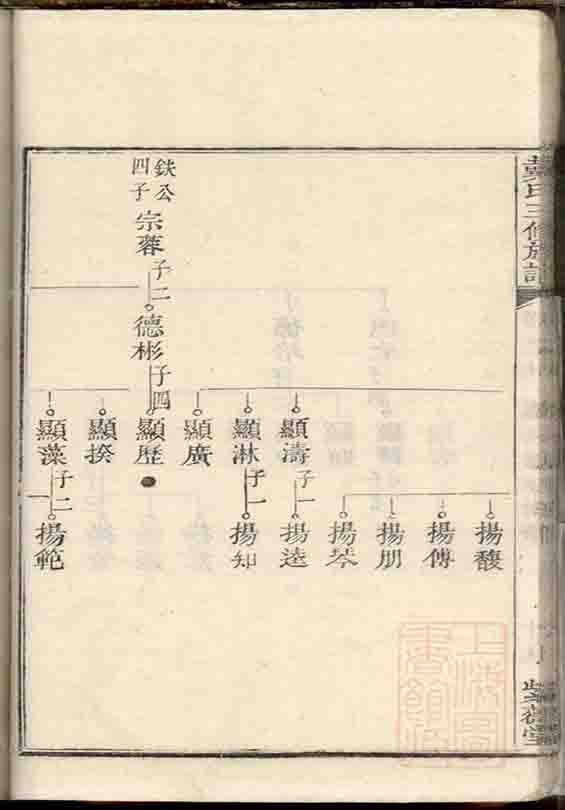 戴氏三修族譜
鉄公
四子
宗蓉
子二
德彬
子四
顯濤
子一
顯淋
子一
顯廣
顯歷
顯揆
顯藻
子二
揚馥
揚傳
揚朋
揚琴
揚逵
揚知
揚範
上海圖
書館藏